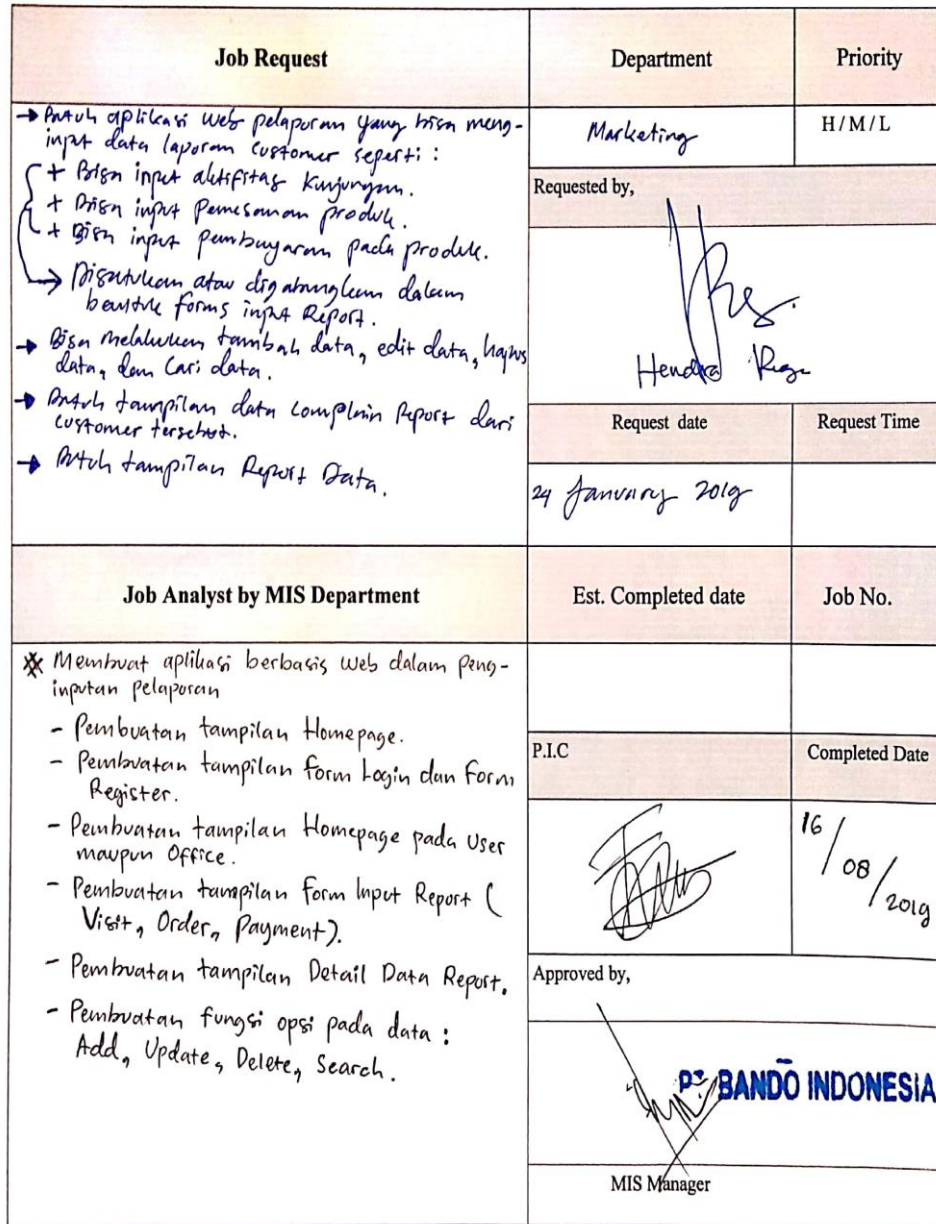 Job Request
Department
Priority
→ Butuh aplikasi web pelaporan yang bisa meng-
input data laporan customer seperti :
+ Bisa input aktifitas Kunjungan.
+ Bisa input Pemesanan produk.
+ Bisa input pembayaran pada produk.
→ Disatukan atau digabungkan dalam
bentuk forms input Report.
→ Bisa melakukan tambah data, edit data, hapus
data, dan Cari data.
→ Butuh tampilan data complain Report dari
customer tersebut.
→ Butuh tampilan Report Data.
Marketing
H/M/L
Requested by,
Hendra
Request date
Request Time
24 January 2019
Job Analyst by MIS Department
Est. Completed date
Job No.
Membuat aplikasi berbasis web dalam peng-
inputan pelaporan
- Pembuatan tampilan Homepage.
- Pembuatan tampilan form Login dan Form
Register.
- Pembuatan tampilan Homepage pada User
maupun Office.
- Pembuatan tampilan form Input Report (
Visit, Order, Payment).
- Pembuatan tampilan Detail Data Report.
- Pembuatan fungsi opsi pada data :
Add, Update, Delete, Search.
P.I.C
Completed Date
16/08/2019
Approved by,
PT. BANDO INDONESIA
MIS Manager